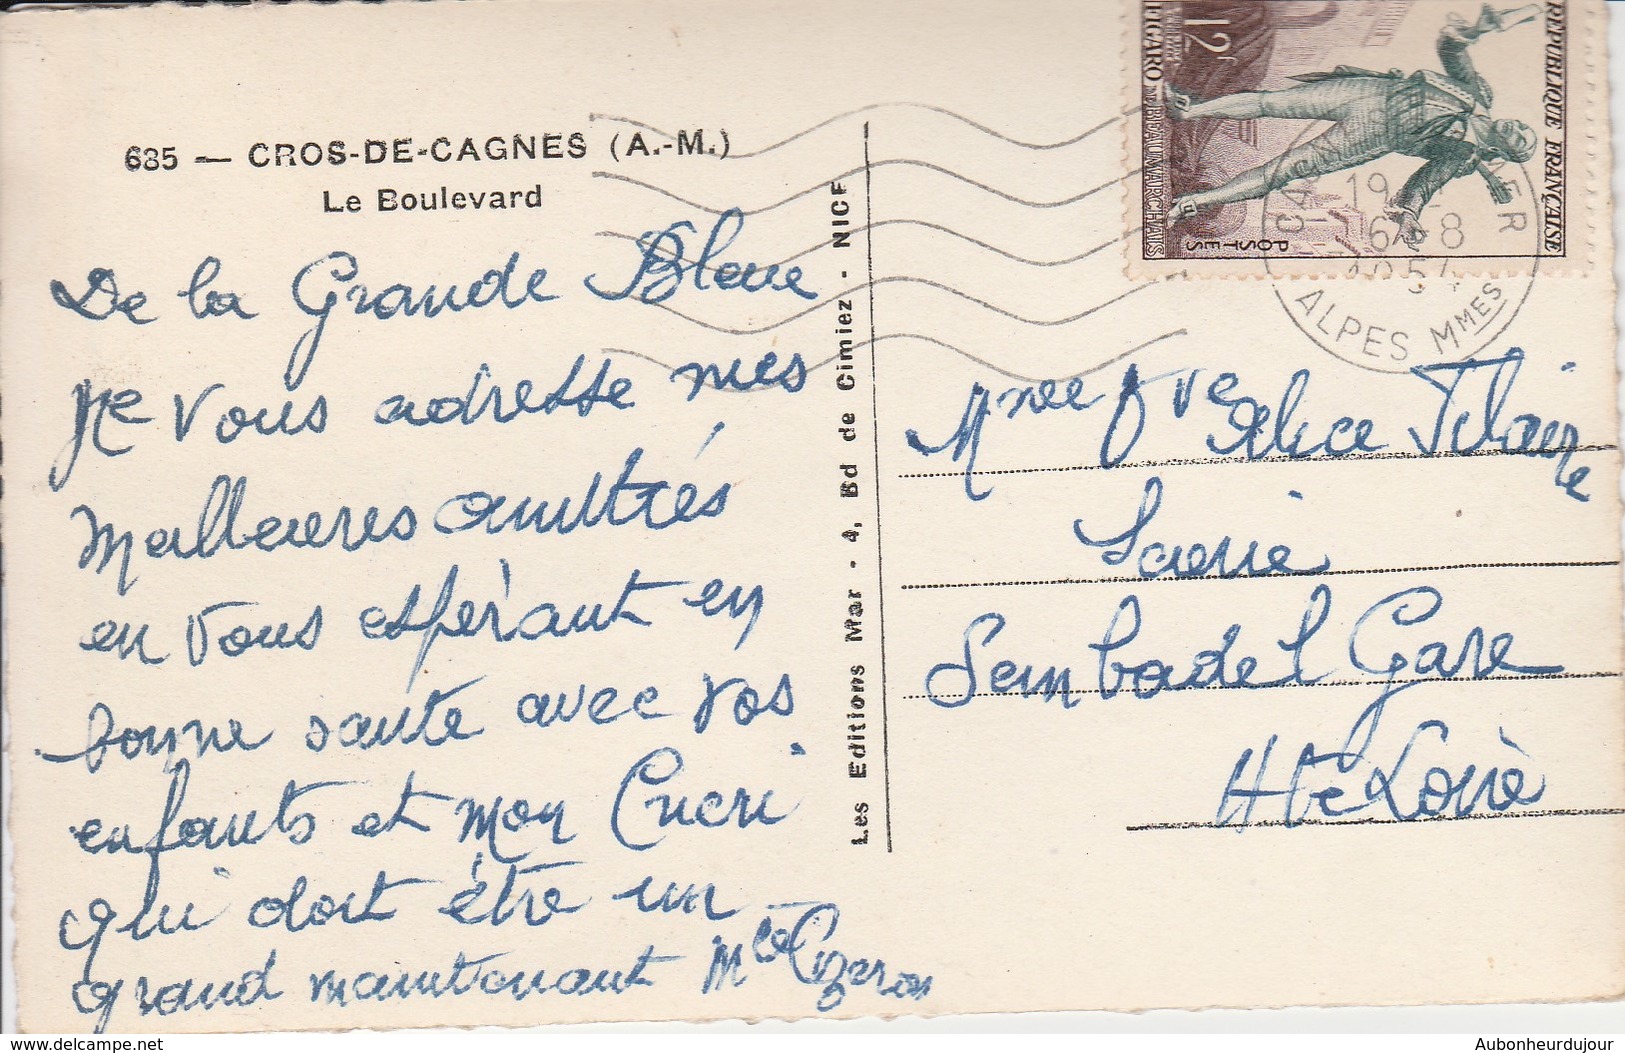 685 — CROS-DE-CAGNES (A.-M.)
Le Boulevard
De la Grande Bleue
Je vous adresse mes
Meilleures amitiés
en vous espérant en
bonne santé avec vos
enfants et mon
qui doit être un
grand maintenant Mce Cizeron
Les Editions Mar - 4, Bd de Cimiez - NICE
REPUBLIQUE FRANÇAISE
12F
FIGARO DE BEAUMARCHAIS
POSTES
CAGNES MER
19
6-8
54
ALPES MMES
Mme Vve Alice
Scierie
Sembadel Gare
Hte Loire
www.delcampe.net
Aubonheurdujour